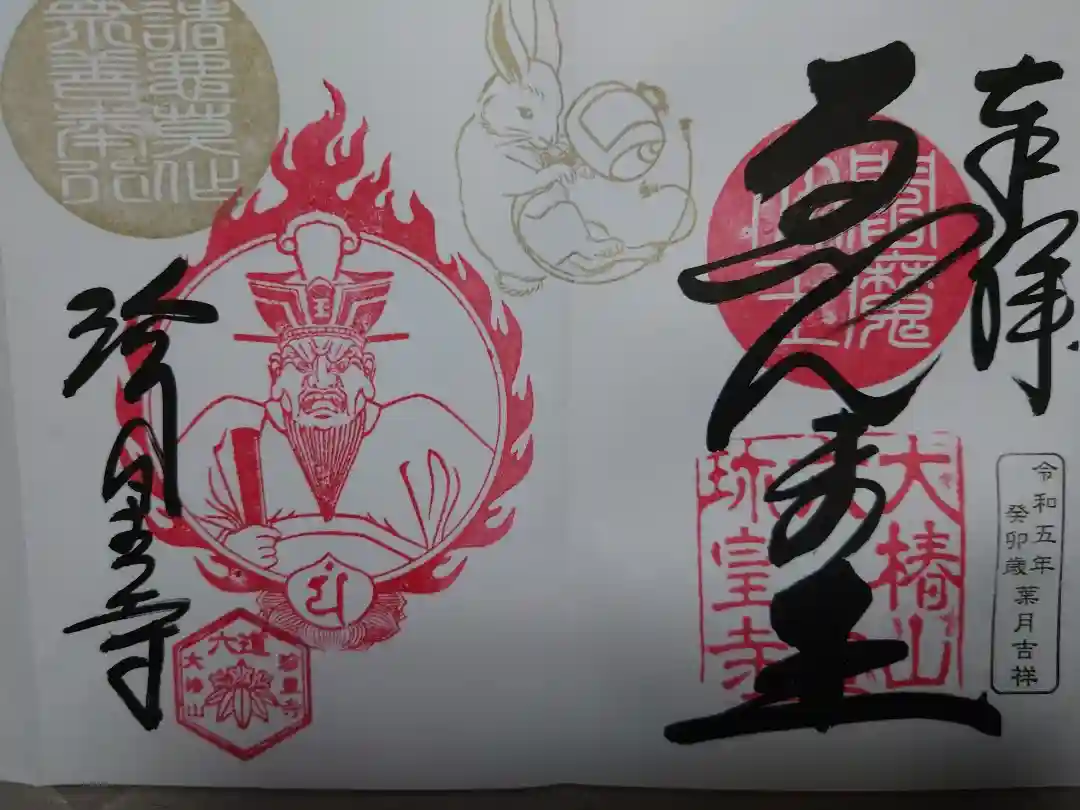 奉拝
令和五年
癸卯歳
葉月吉祥
閻魔
大王
ゑんま王
大椿山
珎皇寺
諸悪莫作
衆善奉行
王
珍皇寺
六道
珍皇寺
大椿山